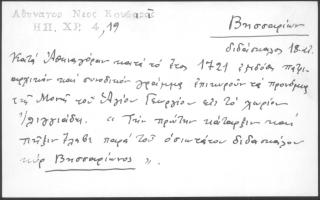 Αθηναγόρ Νεος Κουβαρᾶς
ΗΠ. ΧΡ. 4, 19
Βησσαρίων
διδάσκαλος 18 αἰ.
Κατὰ Ἀθηναγόραν κατὰ τὸ ἔτος 1721 ἐξεδόθη πατρι-
αρχικὸν καὶ συνοδικὸν γράμμα ἐπικυροῦν τὰ προνόμια
τῆς Μονῆς τοῦ Ἁγίου Γεωργίου εἰς τὸ χωρίον
« Τὴν πρώτην κατάρξιν καὶ
πῆξιν ἔλαβε παρὰ τοῦ ὁσιωτάτου διδασκάλου
κὺρ Βησσαρίωνος ».